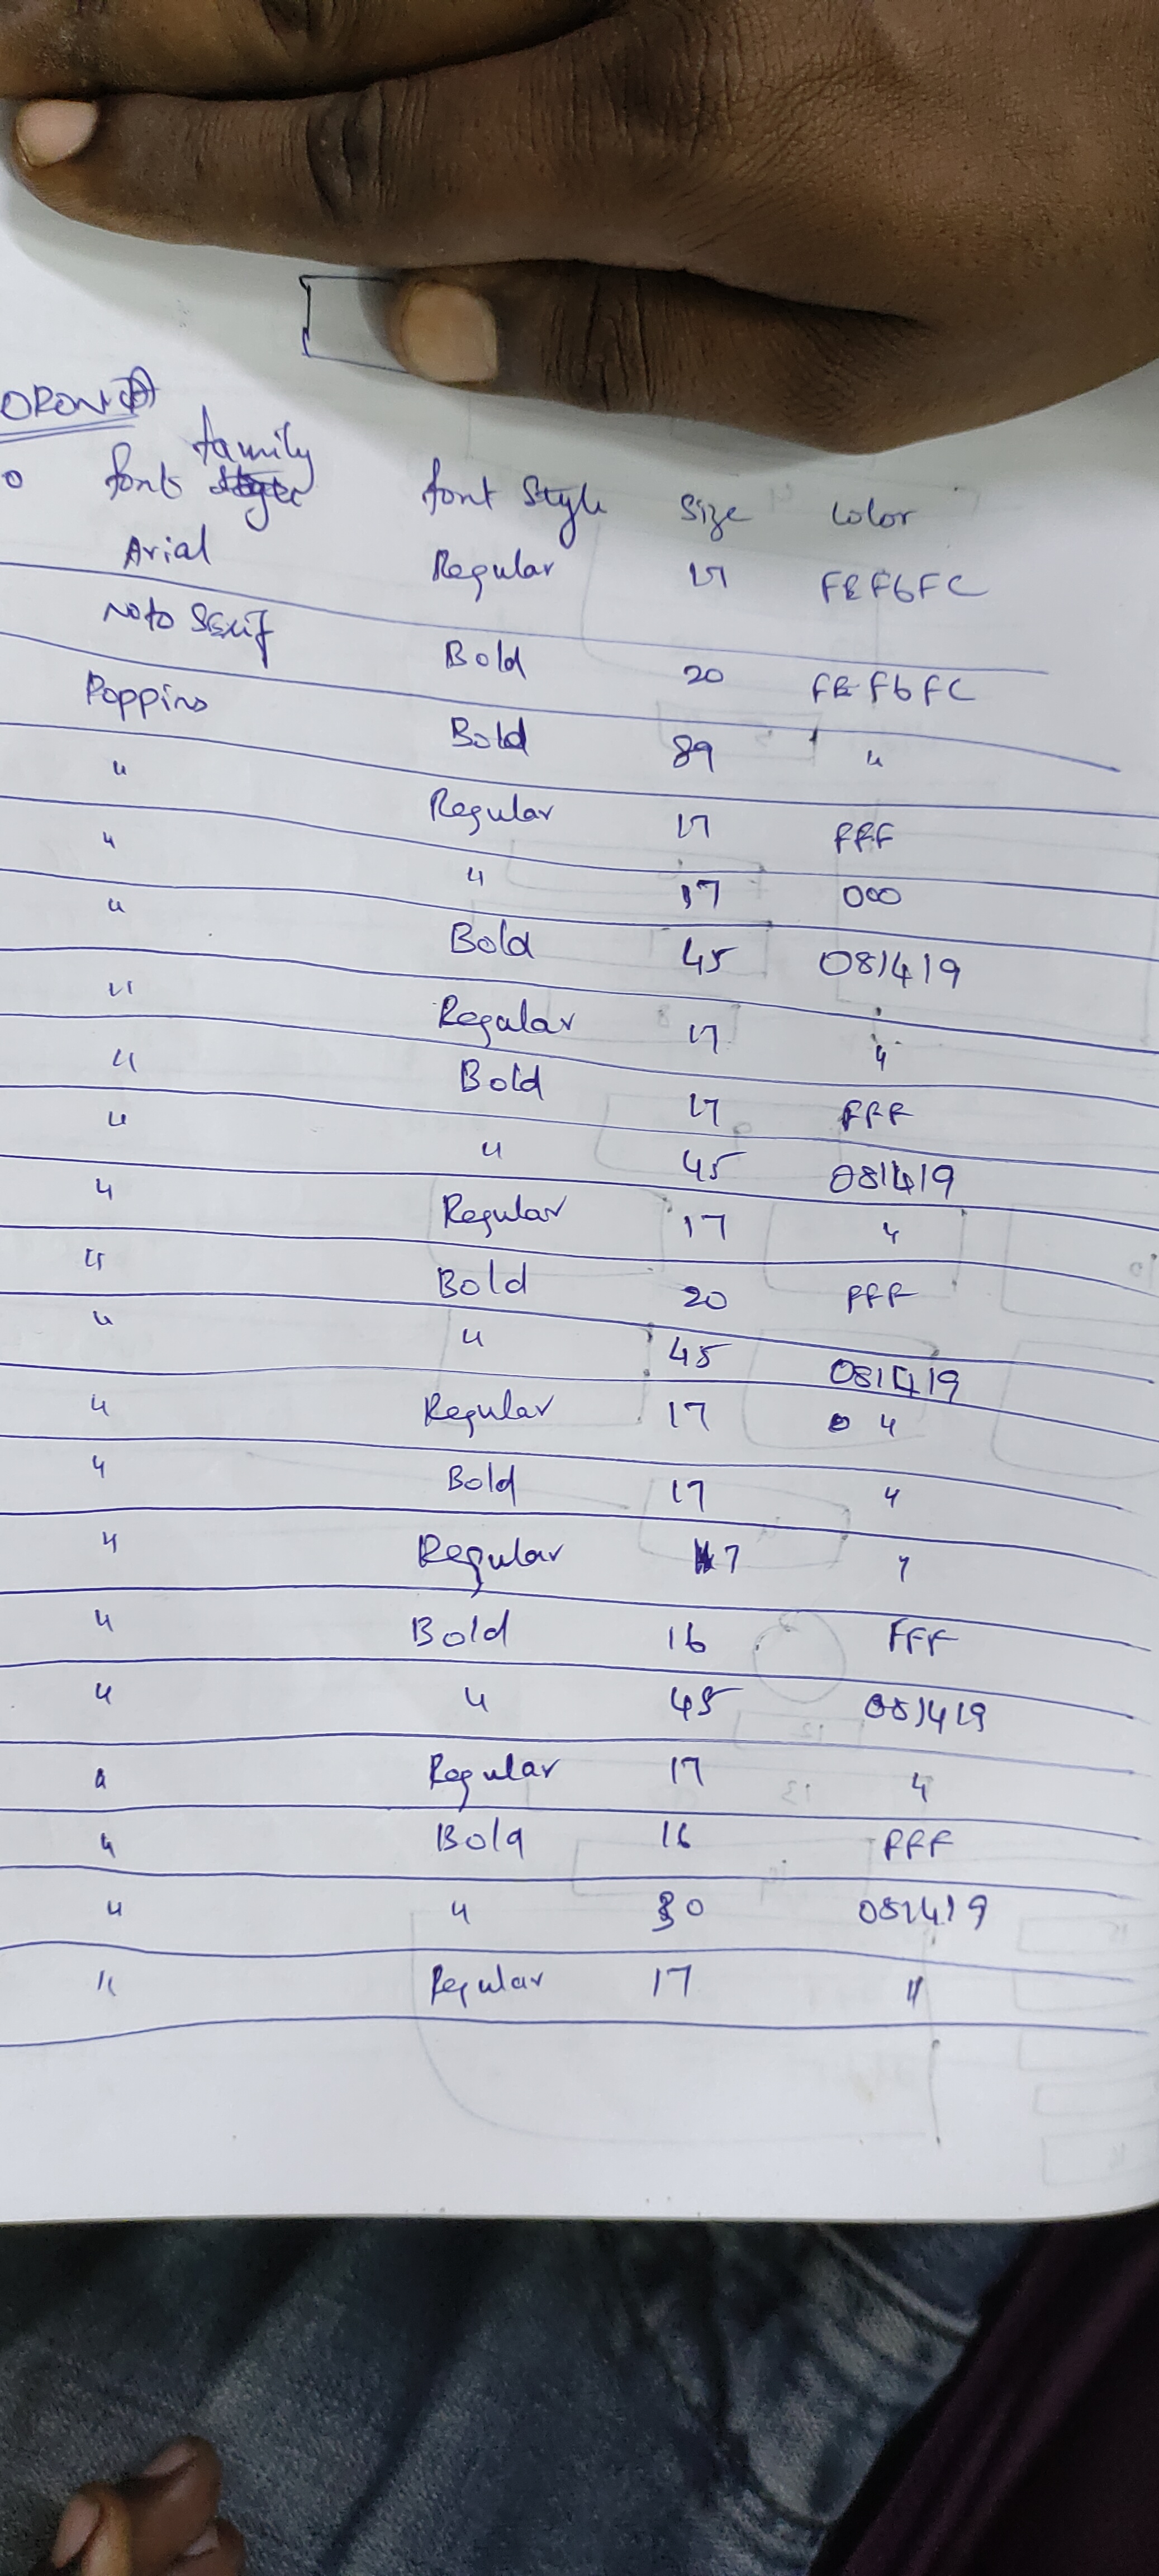 ORONA
family
o font font Style Size Color
Arial Regular 17 FEF6FC
Noto Serif Bold 20 FEF6FC
Poppins Bold 89 "
" Regular 17 FFF
" " 17 000
" Bold 45 081419
" Regular 17 "
" Bold 17 FFF
" " 45 081419
" Regular 17 "
" Bold 20 FFF
" " 45 081419
" Regular 17 "
" Bold 17 "
" Regular 17 "
" Bold 16 FFF
" " 45 081419
" Regular 17 "
" Bold 16 FFF
" " 30 081419
" Regular 17 "